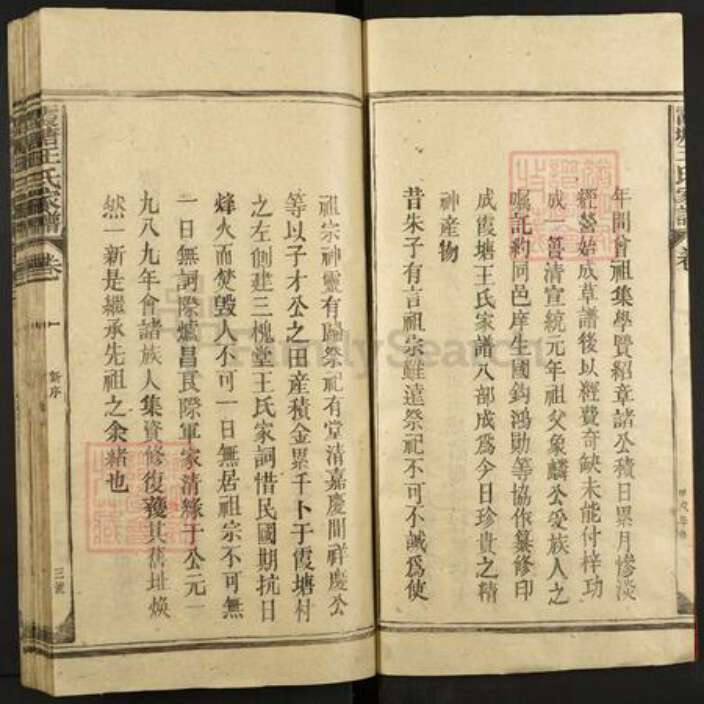 年間會祖集學賢紹章諸公積日累月慘淡
經營始成草譜後以經費奇缺未能付梓功
成一簣清宣統元年祖父象麟公受族人之
囑託約同邑庠生國鈞鴻勛等協作纂修印
成霞塘王氏家譜八部成爲今日珍貴之精
神產物
昔朱子有言祖宗雖遠祭祀不可不誠爲使
祖宗神靈有歸祭祀有堂清嘉慶間祥慶公
等以子才公之田產積金累千卜于霞塘村
之左側建三槐堂王氏家詞惜民國期抗日
烽火而焚毀人不可一日無居祖宗不可無
一日無詞際爐昌民際軍家清緣于公元一
九八九年會諸族人集資修復襲其舊址煥
然一新是繼承先祖之余緒也
霞塘王氏家譜
卷一
新序
三
FamilySearch